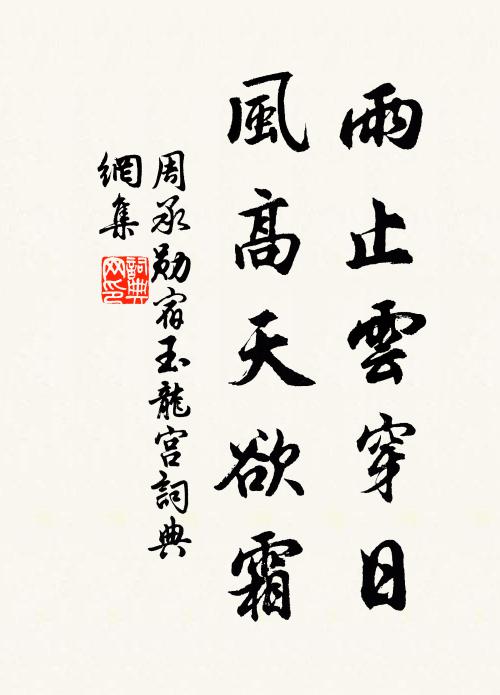 雨止雲穿日
風高天欲霜
周承勛宿玉龍宮詞典
網集
詞典
網印